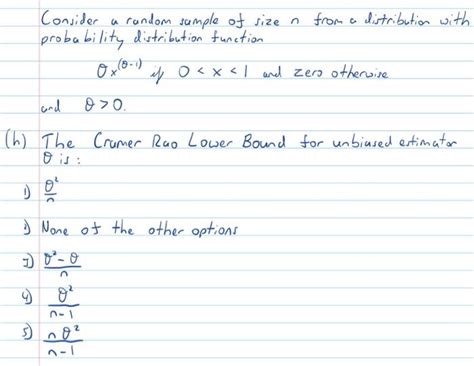 Consider a random sample of size n from a distribution with
probability distribution function
θx^(θ-1) if 0 < x < 1 and zero otherwise
and θ > 0.
(h) The Cramer Rao Lower Bound for unbiased estimator
θ is :
1) θ²/n
2) None of the other options
3) θ² - θ / n
4) θ² / n-1
5) n θ² / n-1